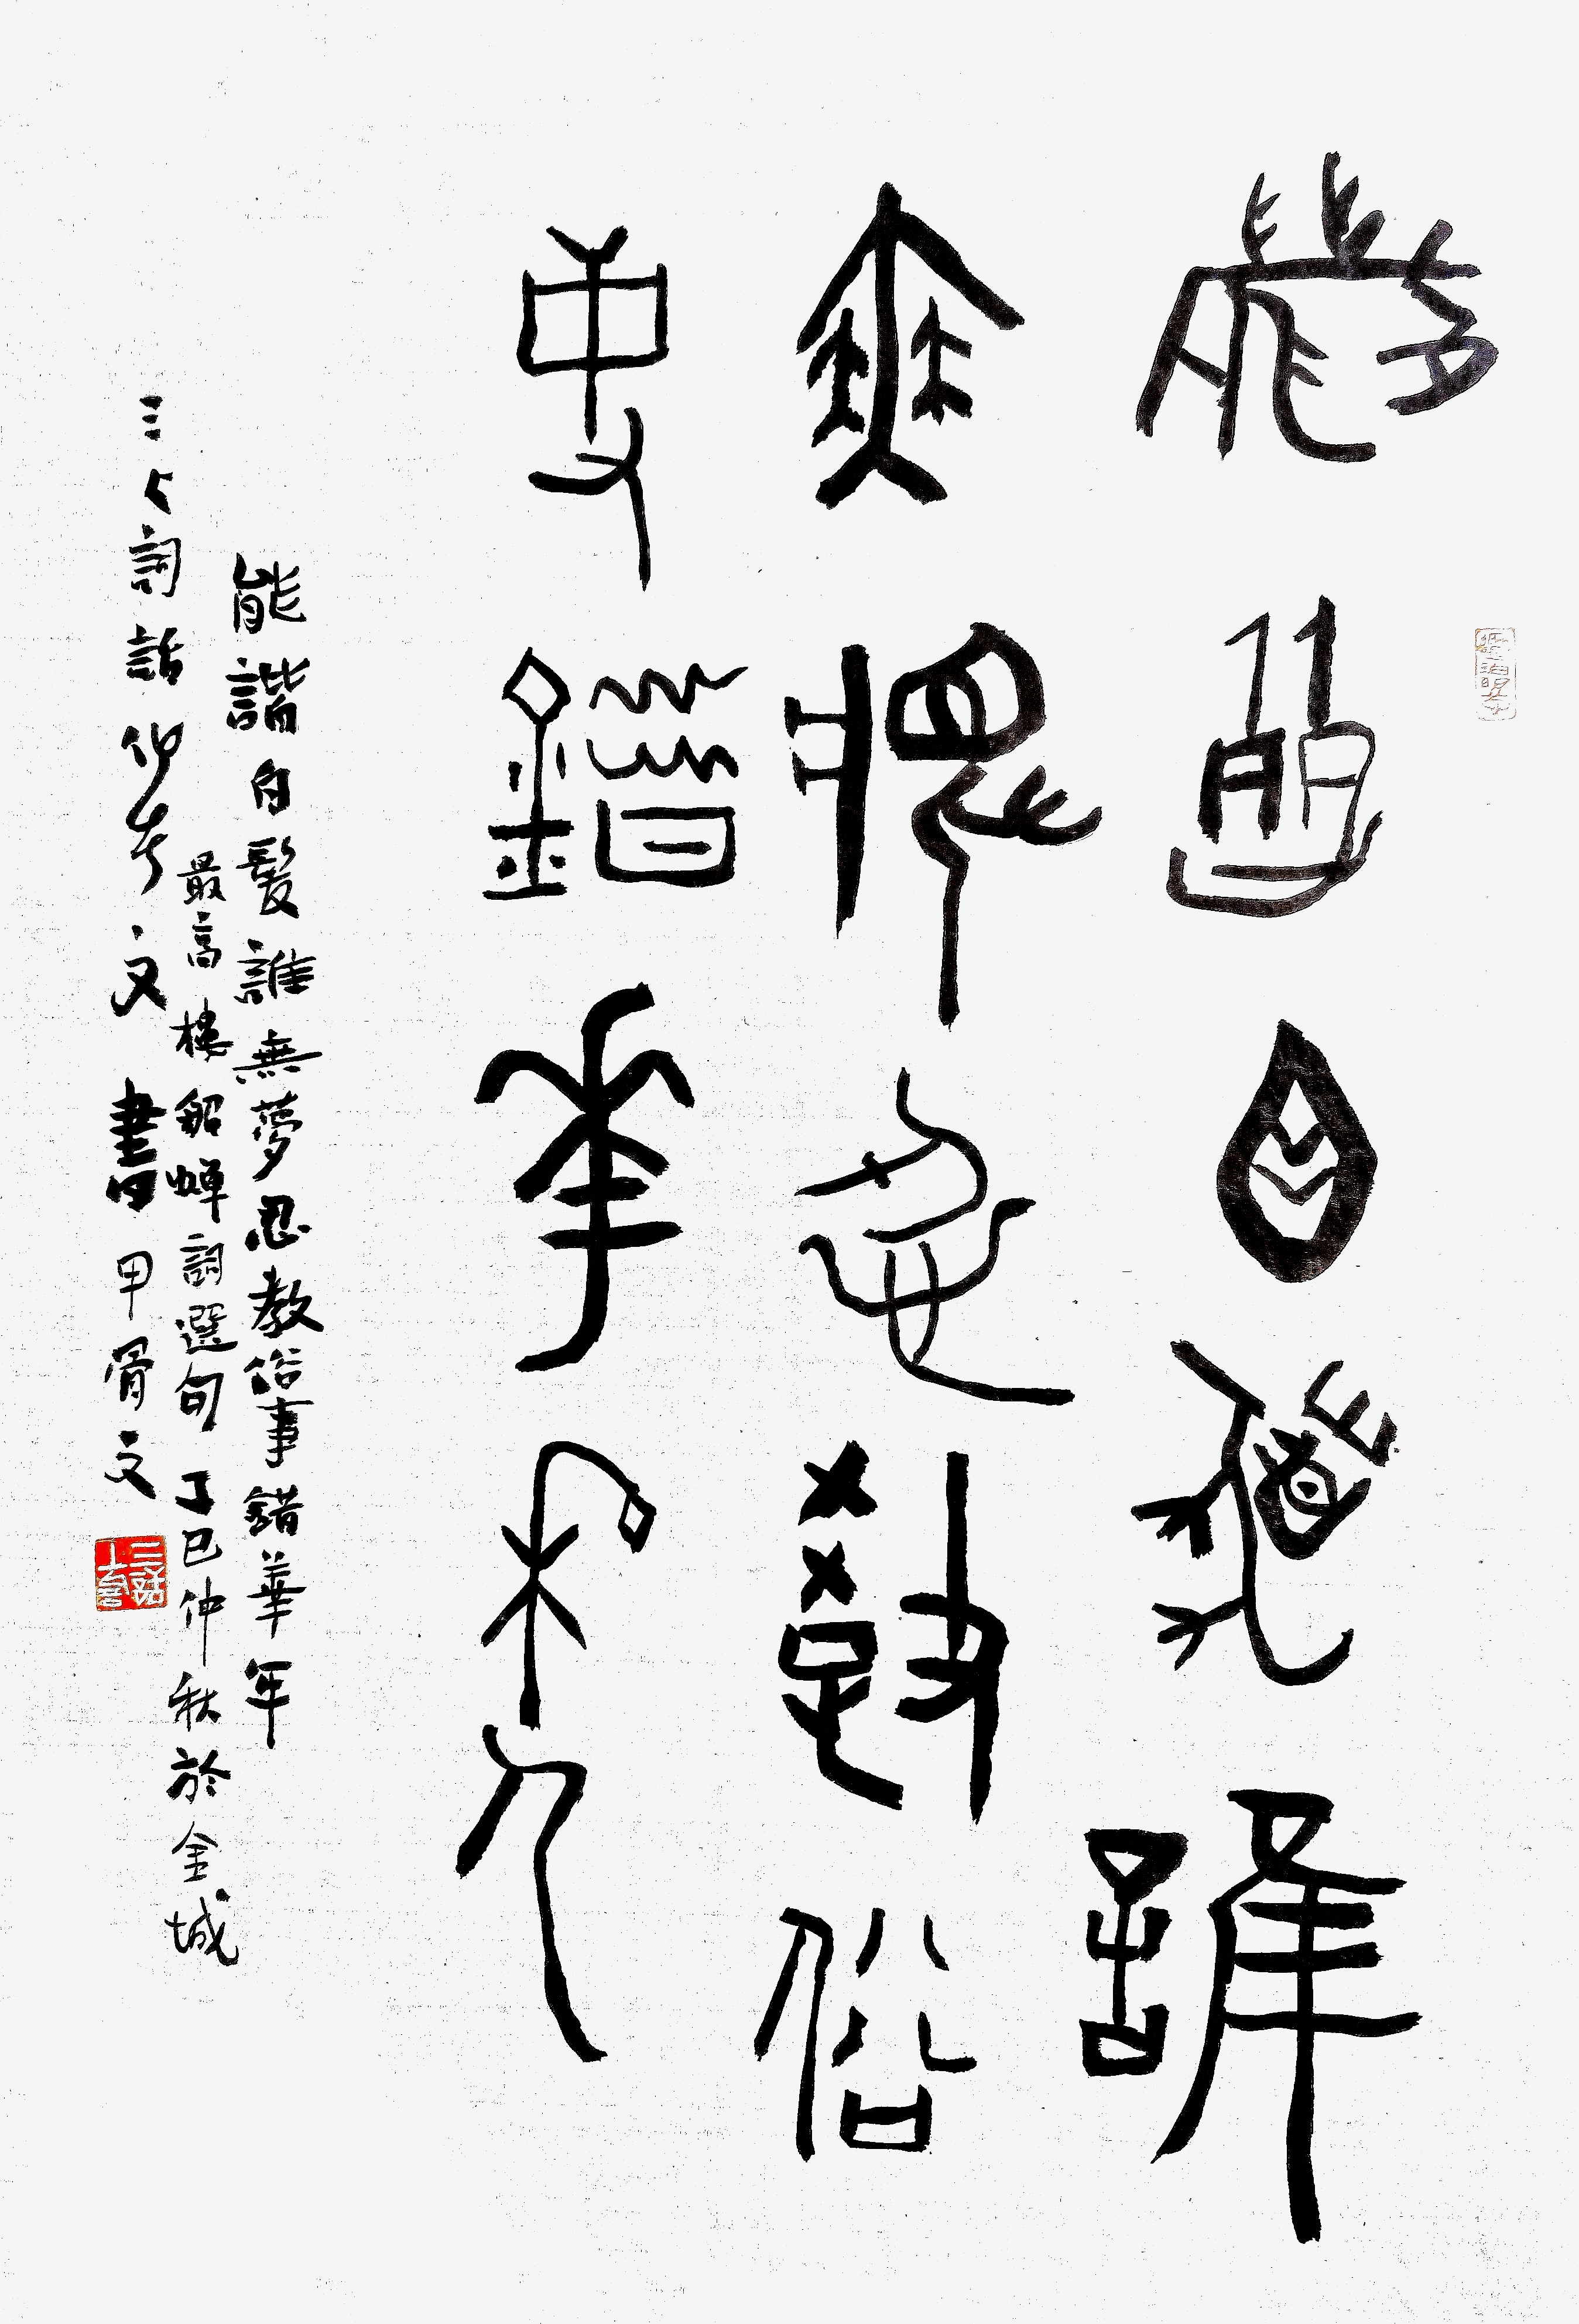 能諧白髮誰
無夢忍教俗
事錯華年
能諧白髮誰無夢忍教俗事錯華年
最高樓貂蟬詞選句丁巳仲秋於金城
詞話 文書甲骨文